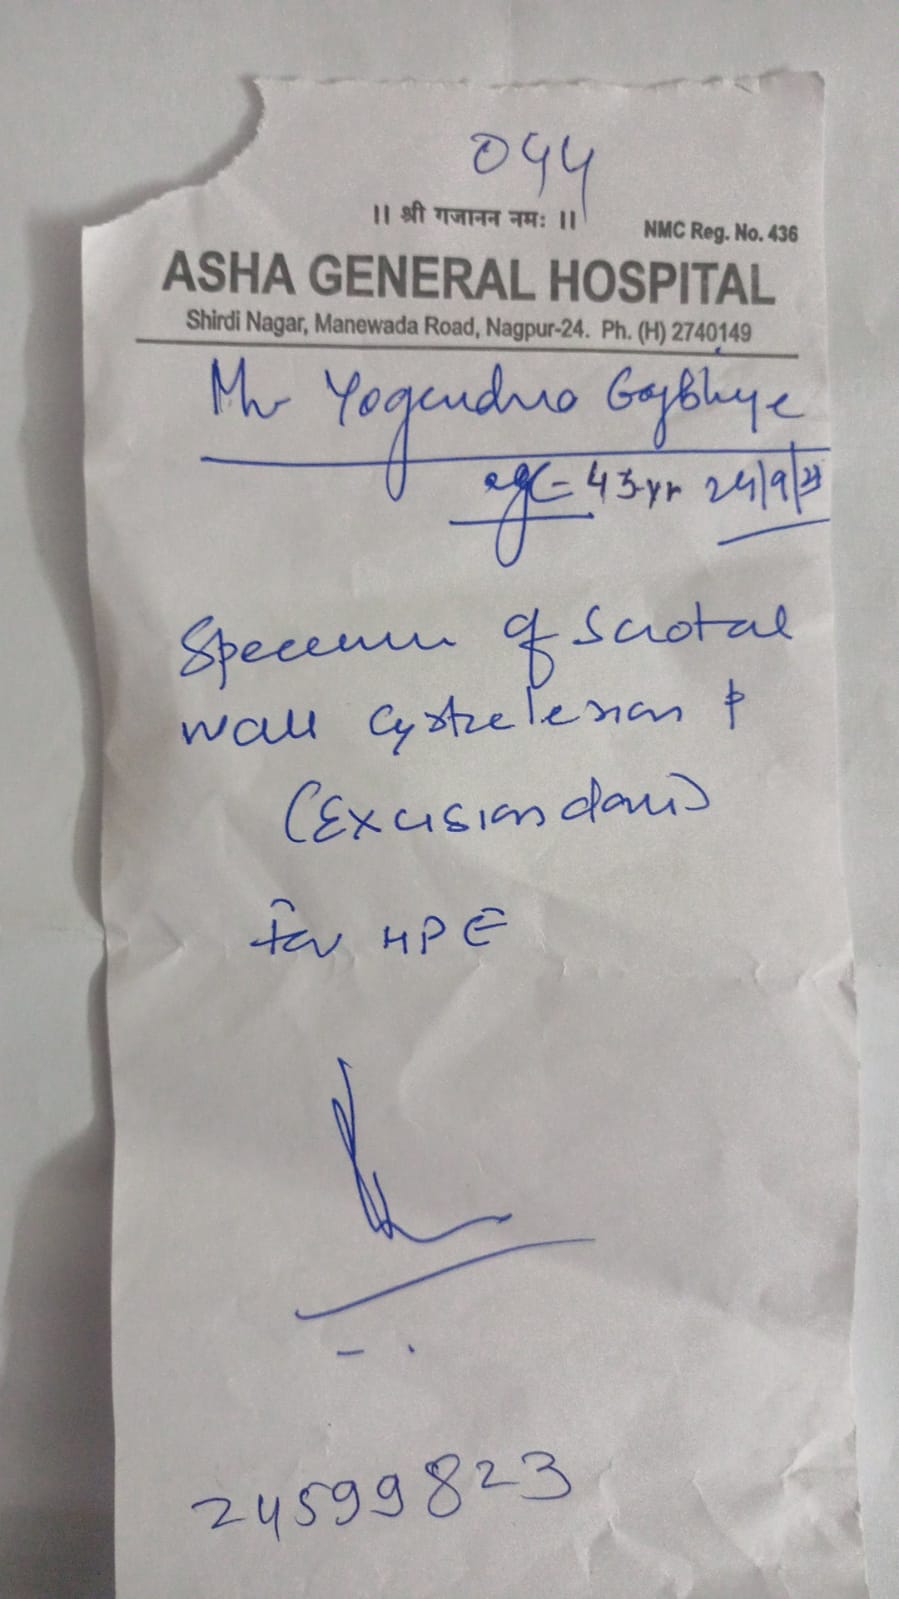 044
।। श्री गजानन नमः ।।
NMC Reg. No. 436
ASHA GENERAL HOSPITAL
Shirdi Nagar, Manewada Road, Nagpur-24. Ph. (H) 2740149
Mr Yogendra Gajbhiye
age = 43 yr 24/9/
Specimen of Scrotal
wall cystic lesion
(Excision done)
for HPE
24599823